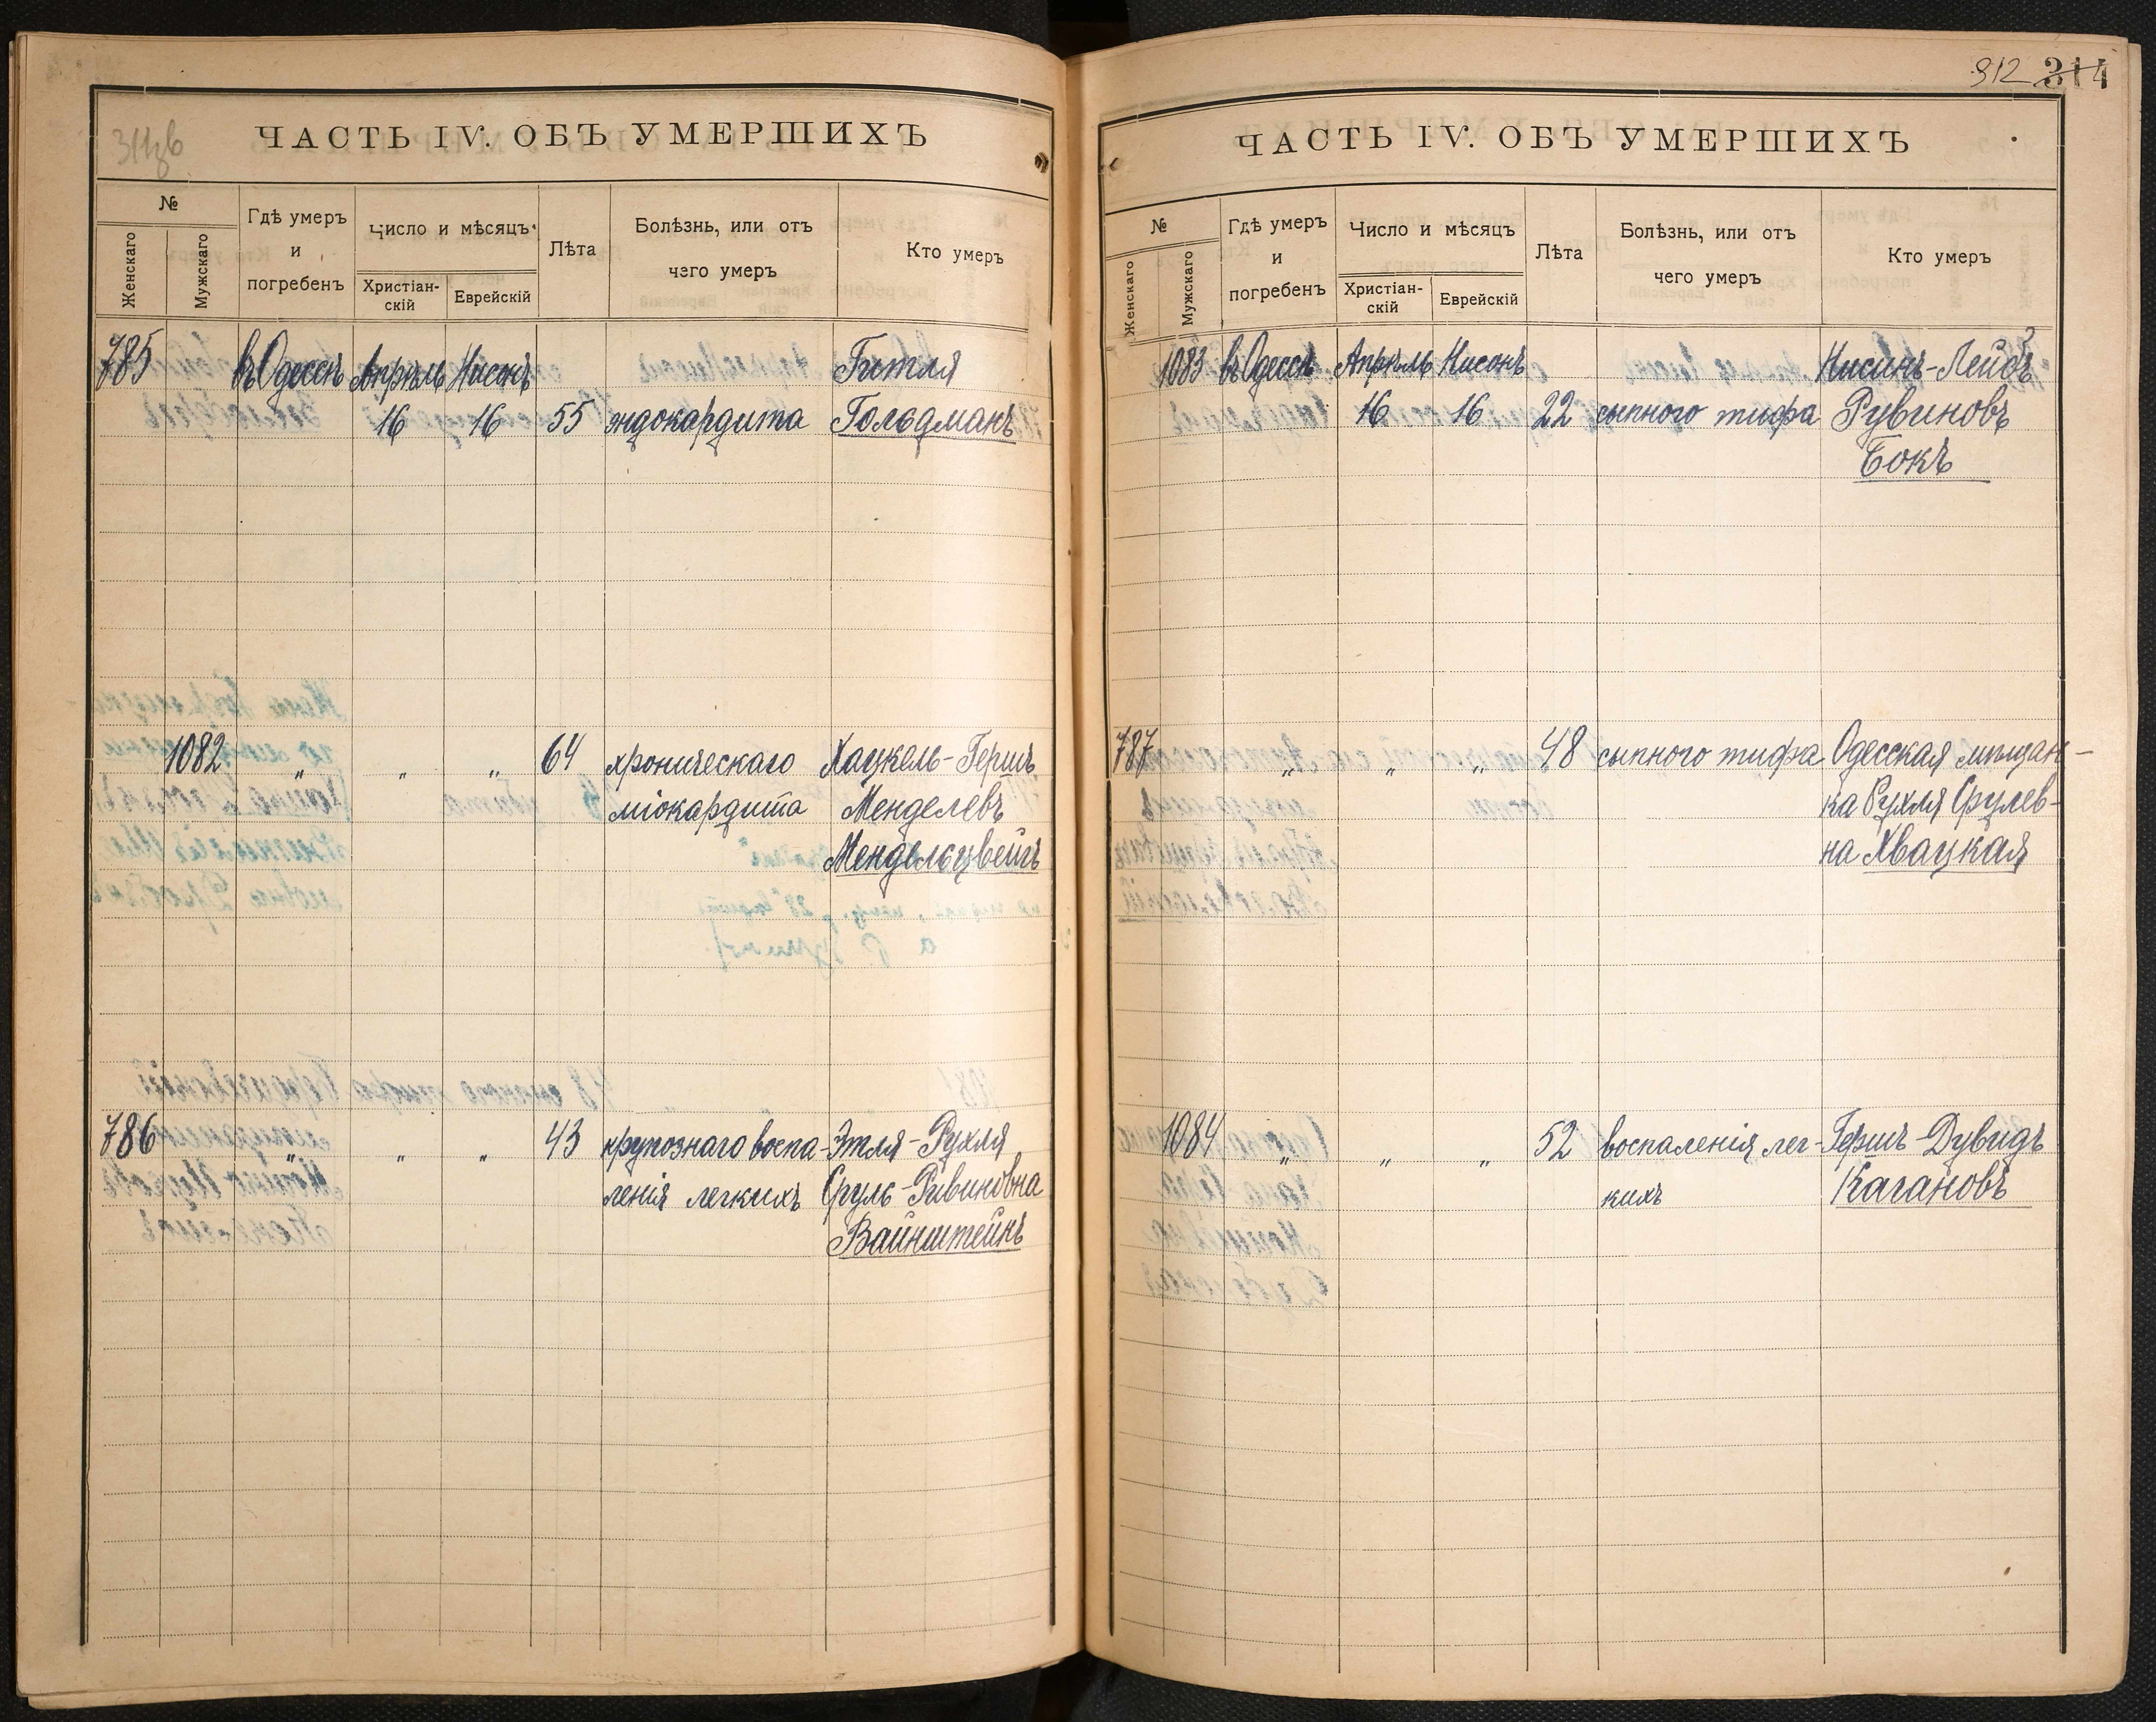 311 зв
ЧАСТЬ IV. ОБЪ УМЕРШИХЪ
№
Женскаго
Мужскаго
Гдѣ умеръ
и
погребенъ
Число и мѣсяцъ
Христіан-
скій
Еврейскій
Лѣта
Болѣзнь, или отъ
чего умеръ
Кто умеръ
785 въ Одессѣ Апрѣль Нисонъ Гитля
16 16 55 эндокардита Гольдманъ
1082 " " " 64 хроническаго Хацкель-Гершъ
міокардита Менделевъ
Мендельцвейгъ
786 " " " 43 крупознаго воспа- Этля-Рухля
ленія легкихъ Сруль-Рувиновна
Вайнштейнъ
312 314
ЧАСТЬ IV. ОБЪ УМЕРШИХЪ
№
Женскаго
Мужскаго
Гдѣ умеръ
и
погребенъ
Число и мѣсяцъ
Христіан-
скій
Еврейскій
Лѣта
Болѣзнь, или отъ
чего умеръ
Кто умеръ
1083 въ Одессѣ Апрѣль Нисонъ Нисинъ-Лейбъ
16 16 22 сыпного тифа Рувиновъ
Бокъ
787 " " " 48 сыпного тифа Одесская мѣщан-
ка Рухля Срулев-
на Хвацкая
1084 " " " 52 воспаленія лег- Гершъ-Дувидъ
кихъ Кагановъ